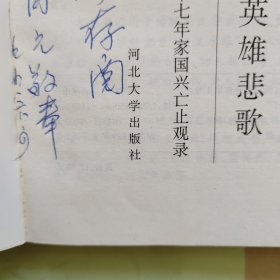 英雄悲歌
七年家国兴亡止观录
河北大学出版社
存阅
敬奉